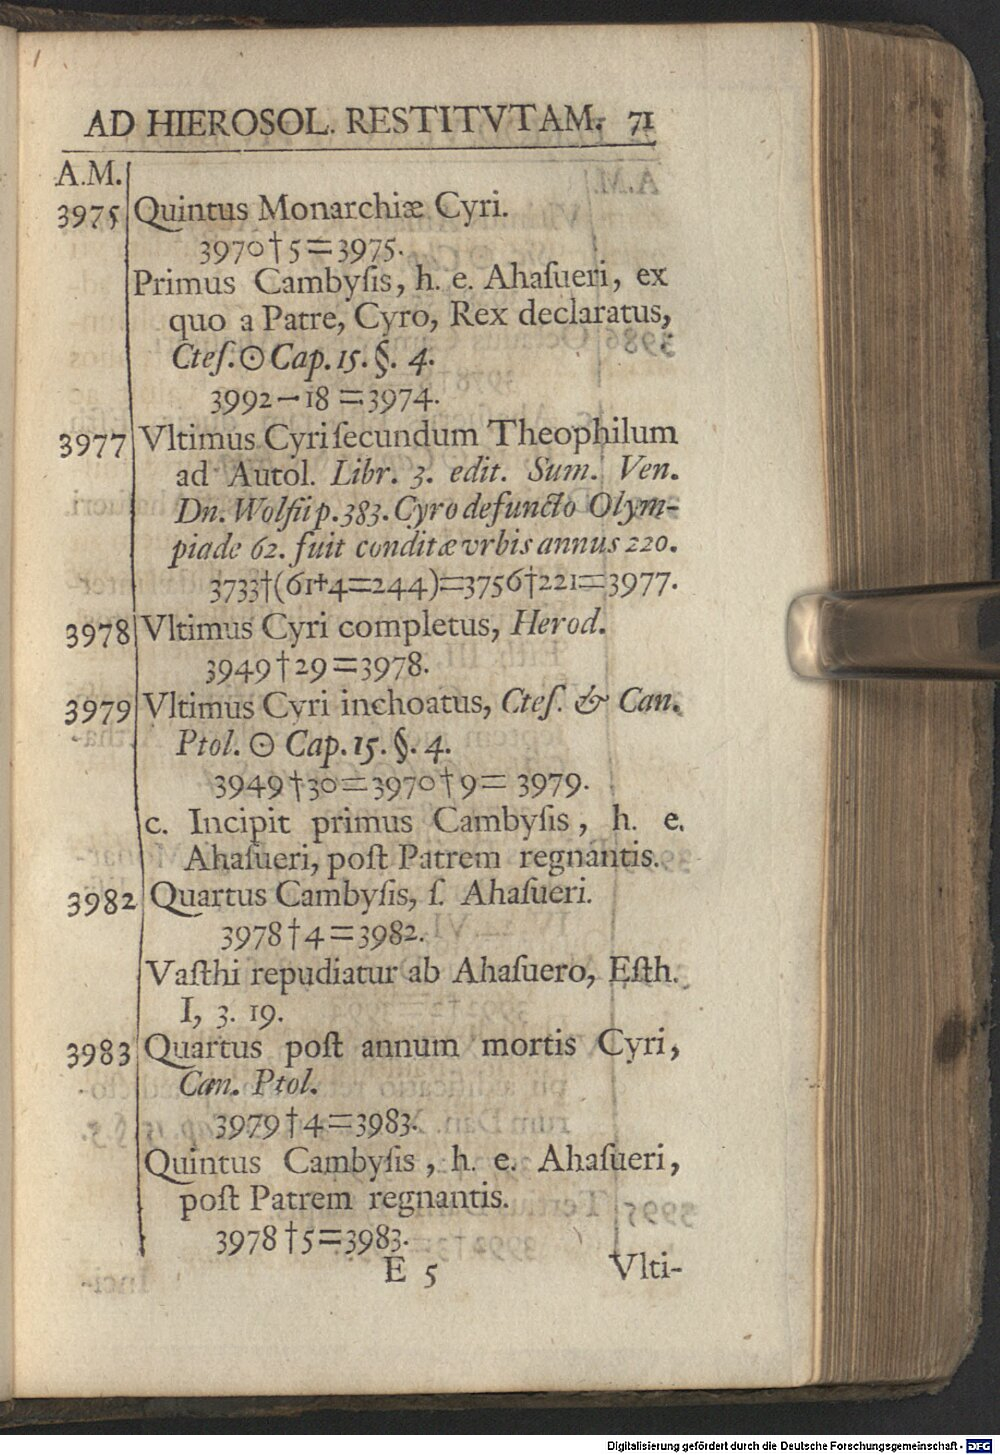 AD HIEROSOL. RESTITVTAM. 71
A.M.
3975 Quintus Monarchiæ Cyri.
3970†5=3975.
Primus Cambyſis, h. e. Ahaſueri, ex
quo a Patre, Cyro, Rex declaratus,
Cteſ. ☉ Cap. 15. §. 4.
3992−18=3974.
3977 Vltimus Cyri ſecundum Theophilum
ad Autol. Libr. 3. edit. Sum. Ven.
Dn. Wolfii p. 383. Cyro defuncto Olym-
piade 62. fuit conditæ vrbis annus 220.
3733†(61+4=244)=3756†221=3977.
3978 Vltimus Cyri completus, Herod.
3949†29=3978.
3979 Vltimus Cyri inchoatus, Cteſ. & Can.
Ptol. ☉ Cap. 15. §. 4.
3949†30=3970†9=3979.
c. Incipit primus Cambyſis, h. e.
Ahaſueri, poſt Patrem regnantis.
3982 Quartus Cambyſis, ſ. Ahaſueri.
3978†4=3982.
Vaſthi repudiatur ab Ahaſuero, Eſth.
I, 3. 19.
3983 Quartus poſt annum mortis Cyri,
Can. Ptol.
3979†4=3983.
Quintus Cambyſis, h. e. Ahaſueri,
poſt Patrem regnantis.
3978†5=3983.
E 5 Vlti-
Digitalisierung gefördert durch die Deutsche Forschungsgemeinschaft - DFG